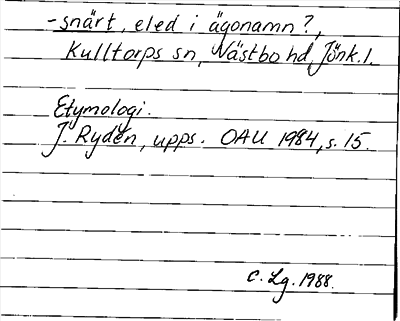 -snärt, eled i ägonamn?,
Kulltorps sn, Västbo hd, Jönk.l.
Etymologi.
J. Rydén, upps. OAU 1984, s. 15.
C. Lg. 1988.